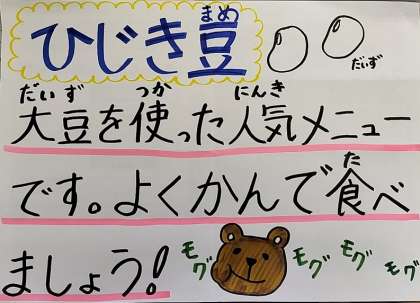 まめ
ひじき豆
だいず
だいず つか にんき
大豆を使った人気メニュー
た
です。よくかんで食べ
ましょう!
モグ モグ モグ モグ